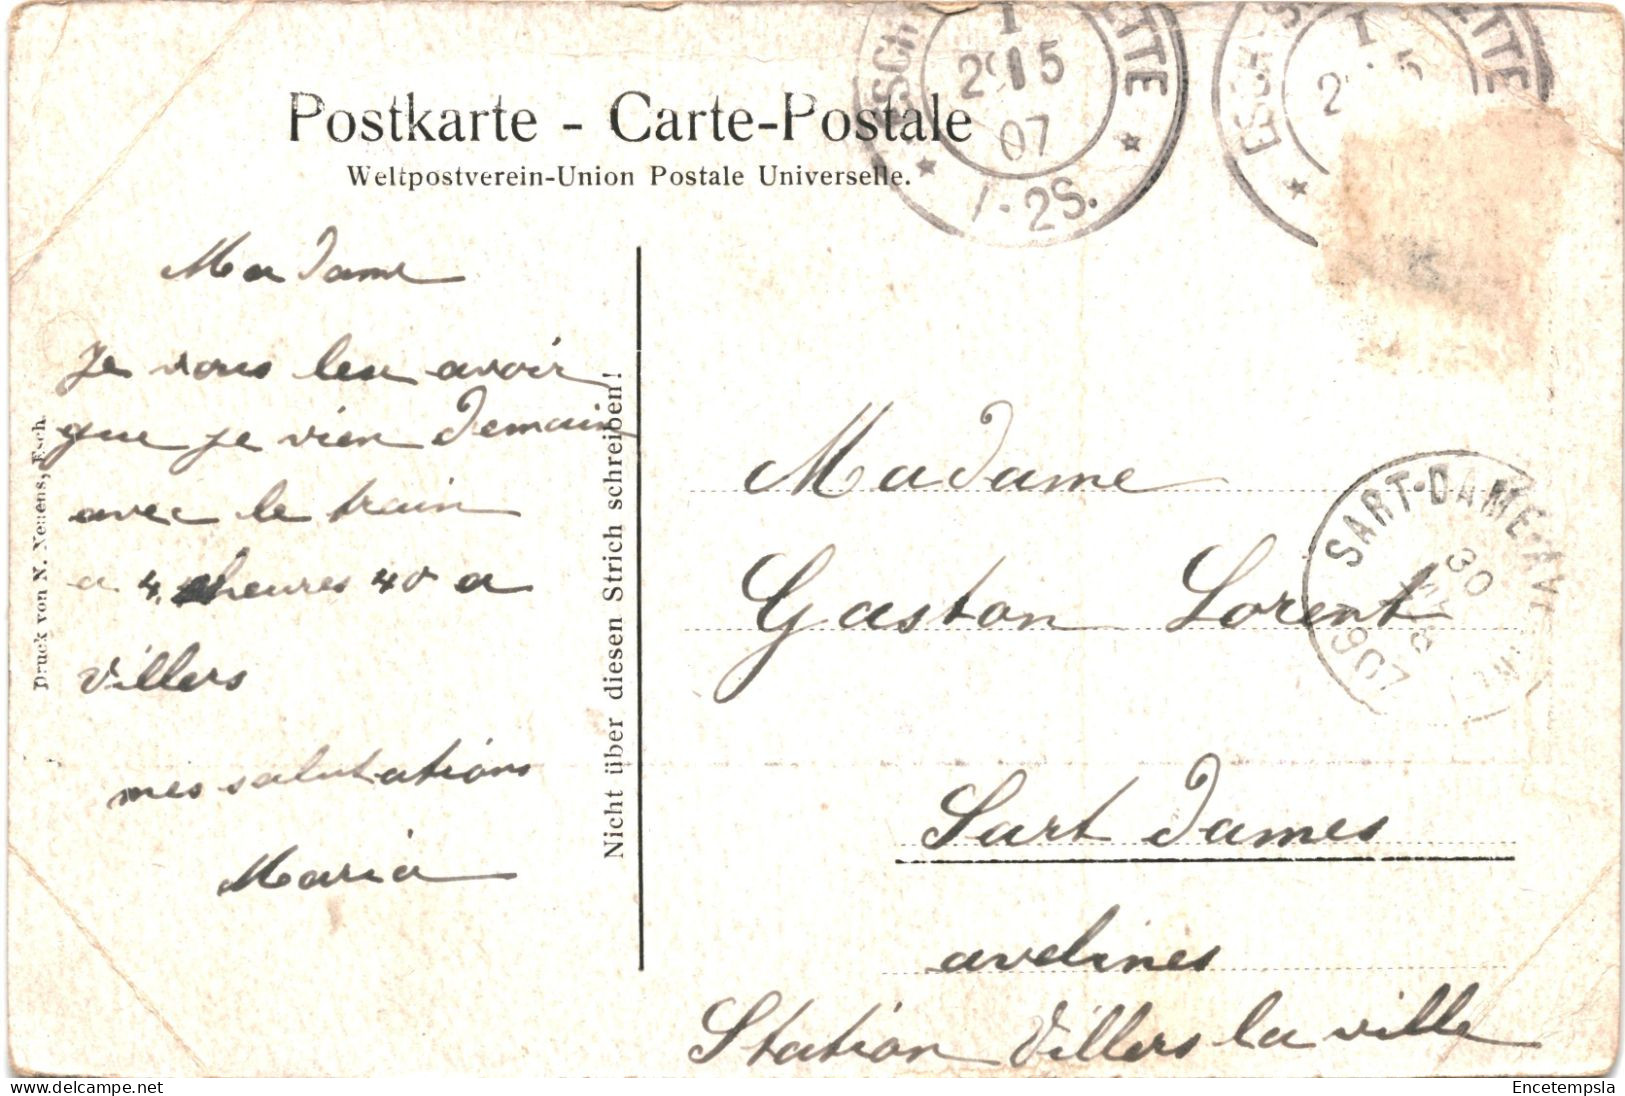 Postkarte - Carte-Postale
Weltpostverein-Union Postale Universelle.
ESCH
ETTE
29 5
07
1-2S.
ESCH-S
ETTE
Madame
je vous leu avoir
que je vien demain
avec le train
a 4 heures 40 a
villers
mes salutations
Maria
Druck von N. Neuens, Esch.
Nicht über diesen Strich schreiben!
Madame
Gaston Lorent
Sart dames
avelines
Station Villers la ville
SART-DAME-AVE
30
8
1907
Encetempsla